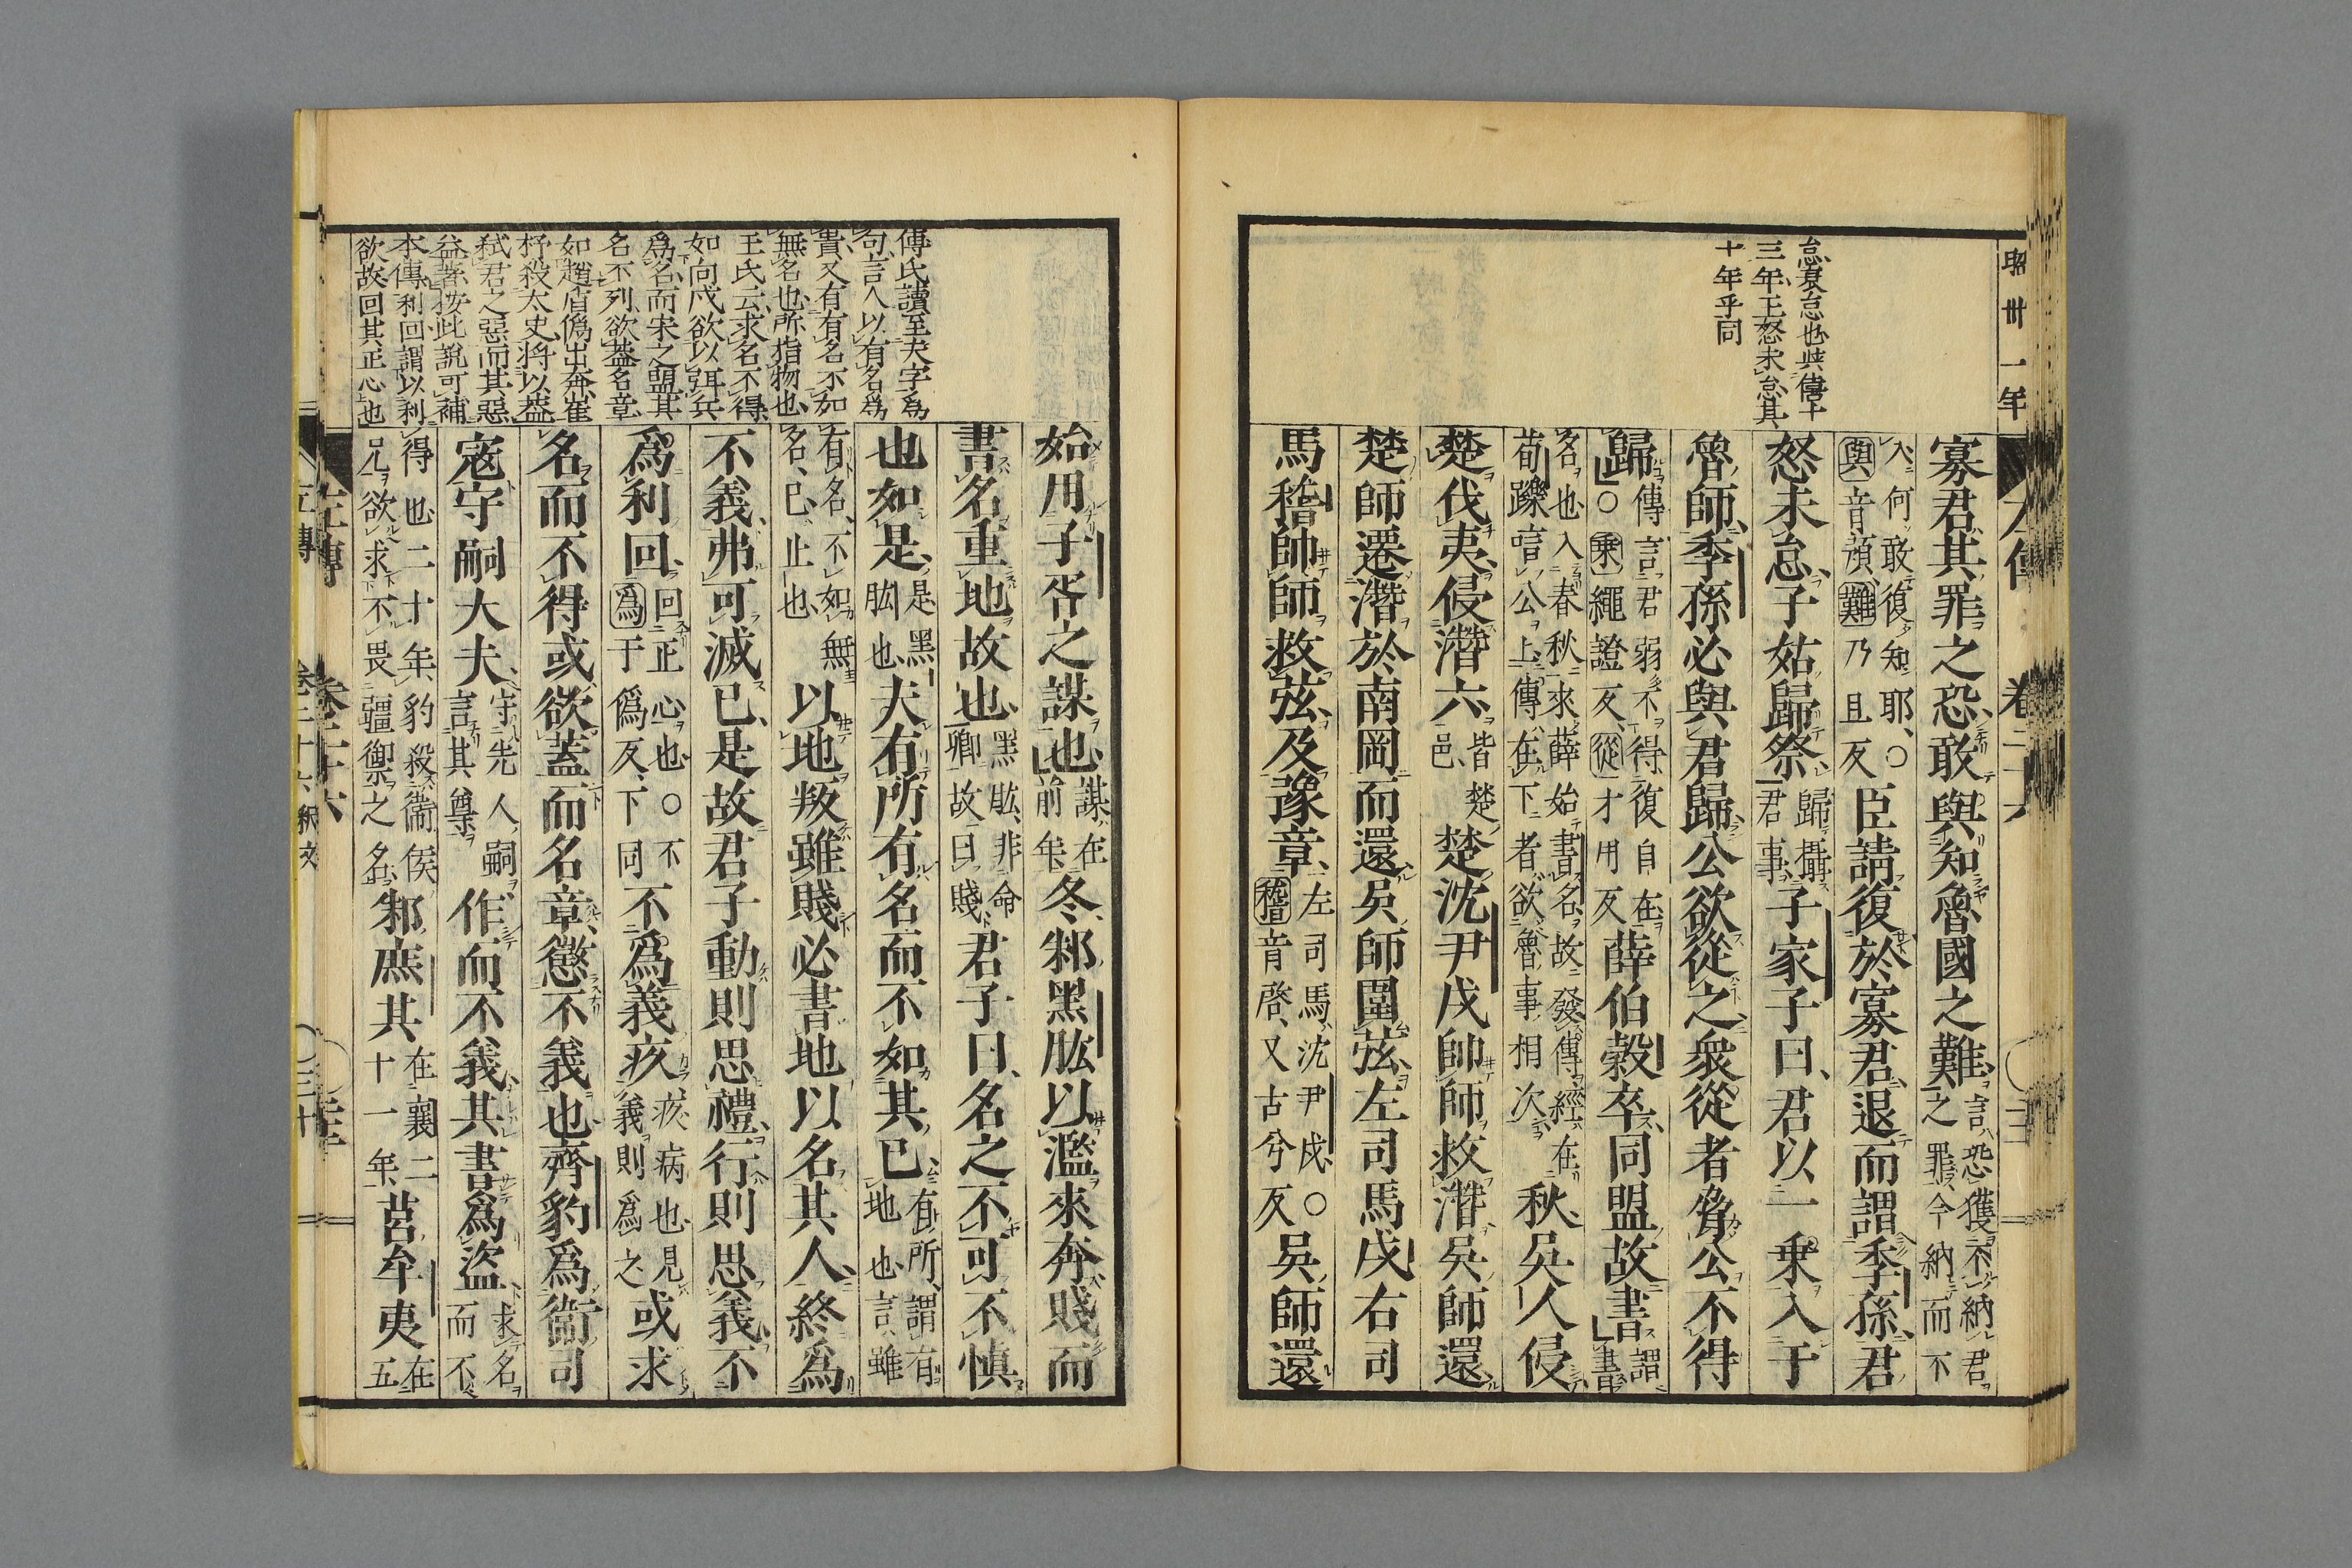 昭卅一年
怠衰怠也與僖十
三年王怒未怠其
十年乎同
寡君其罪之恐敢與知魯國之難言恐獲不納君之罪今納而不
入何敢復知耶○與音預難乃且反臣請復於寡君退而謂季孫君
怒未怠子姑歸祭歸攝君事子家子曰君以一乘入于
魯師季孫必與君歸公欲從之衆從者脅公不得
歸傳言君弱不得復自在○乘繩證反從才用反薛伯穀卒同盟故書謂書
名也入春秋來薛始書名故發傳經在荀躒唁公上傳在下者欲魯事相次秋吳人侵
楚伐夷侵潛六皆楚邑楚沈尹戌帥師救潛吳師還
楚師遷潛於南岡而還吳師圍弦左司馬戌右司
馬稽帥師救弦及豫章左司馬沈尹戌○稽音啓又古兮反吳師還
傅氏讀至夫字爲
句言人以有名爲
貴又有有名不如
無名也所指物也
王氏云求名不得
如向戌欲以弭兵
爲名而宋之盟其
名不列欲蓋名章
如趙盾僞出奔崔
杼殺太史將以蓋
弑君之惡而其惡
益著按此說可補
本傳利回謂以利
欲故回其正心也
始用子胥之謀也謀在前年冬邾黑肱以濫來奔賤而
書名重地故也黑肱非命卿故曰賤君子曰名之不可不慎
也如是是黑肱也夫有所有名而不如其已有所謂有地也言雖
有名不如無名已止也以地叛雖賤必書地以名其人終爲
不義弗可滅已是故君子動則思禮行則思義不
爲利回回正心也○不爲于僞反下同不爲義疚疚病也見義則爲之或求
名而不得或欲蓋而名章懲不義也齊豹爲衛司
寇守嗣大夫守先人嗣言其尊作而不義其書爲盜求名而不
得也二十年豹殺衛侯兄欲求不畏彊禦之名邾庶其在襄二十一年莒牟夷在五
左傳 卷二十六